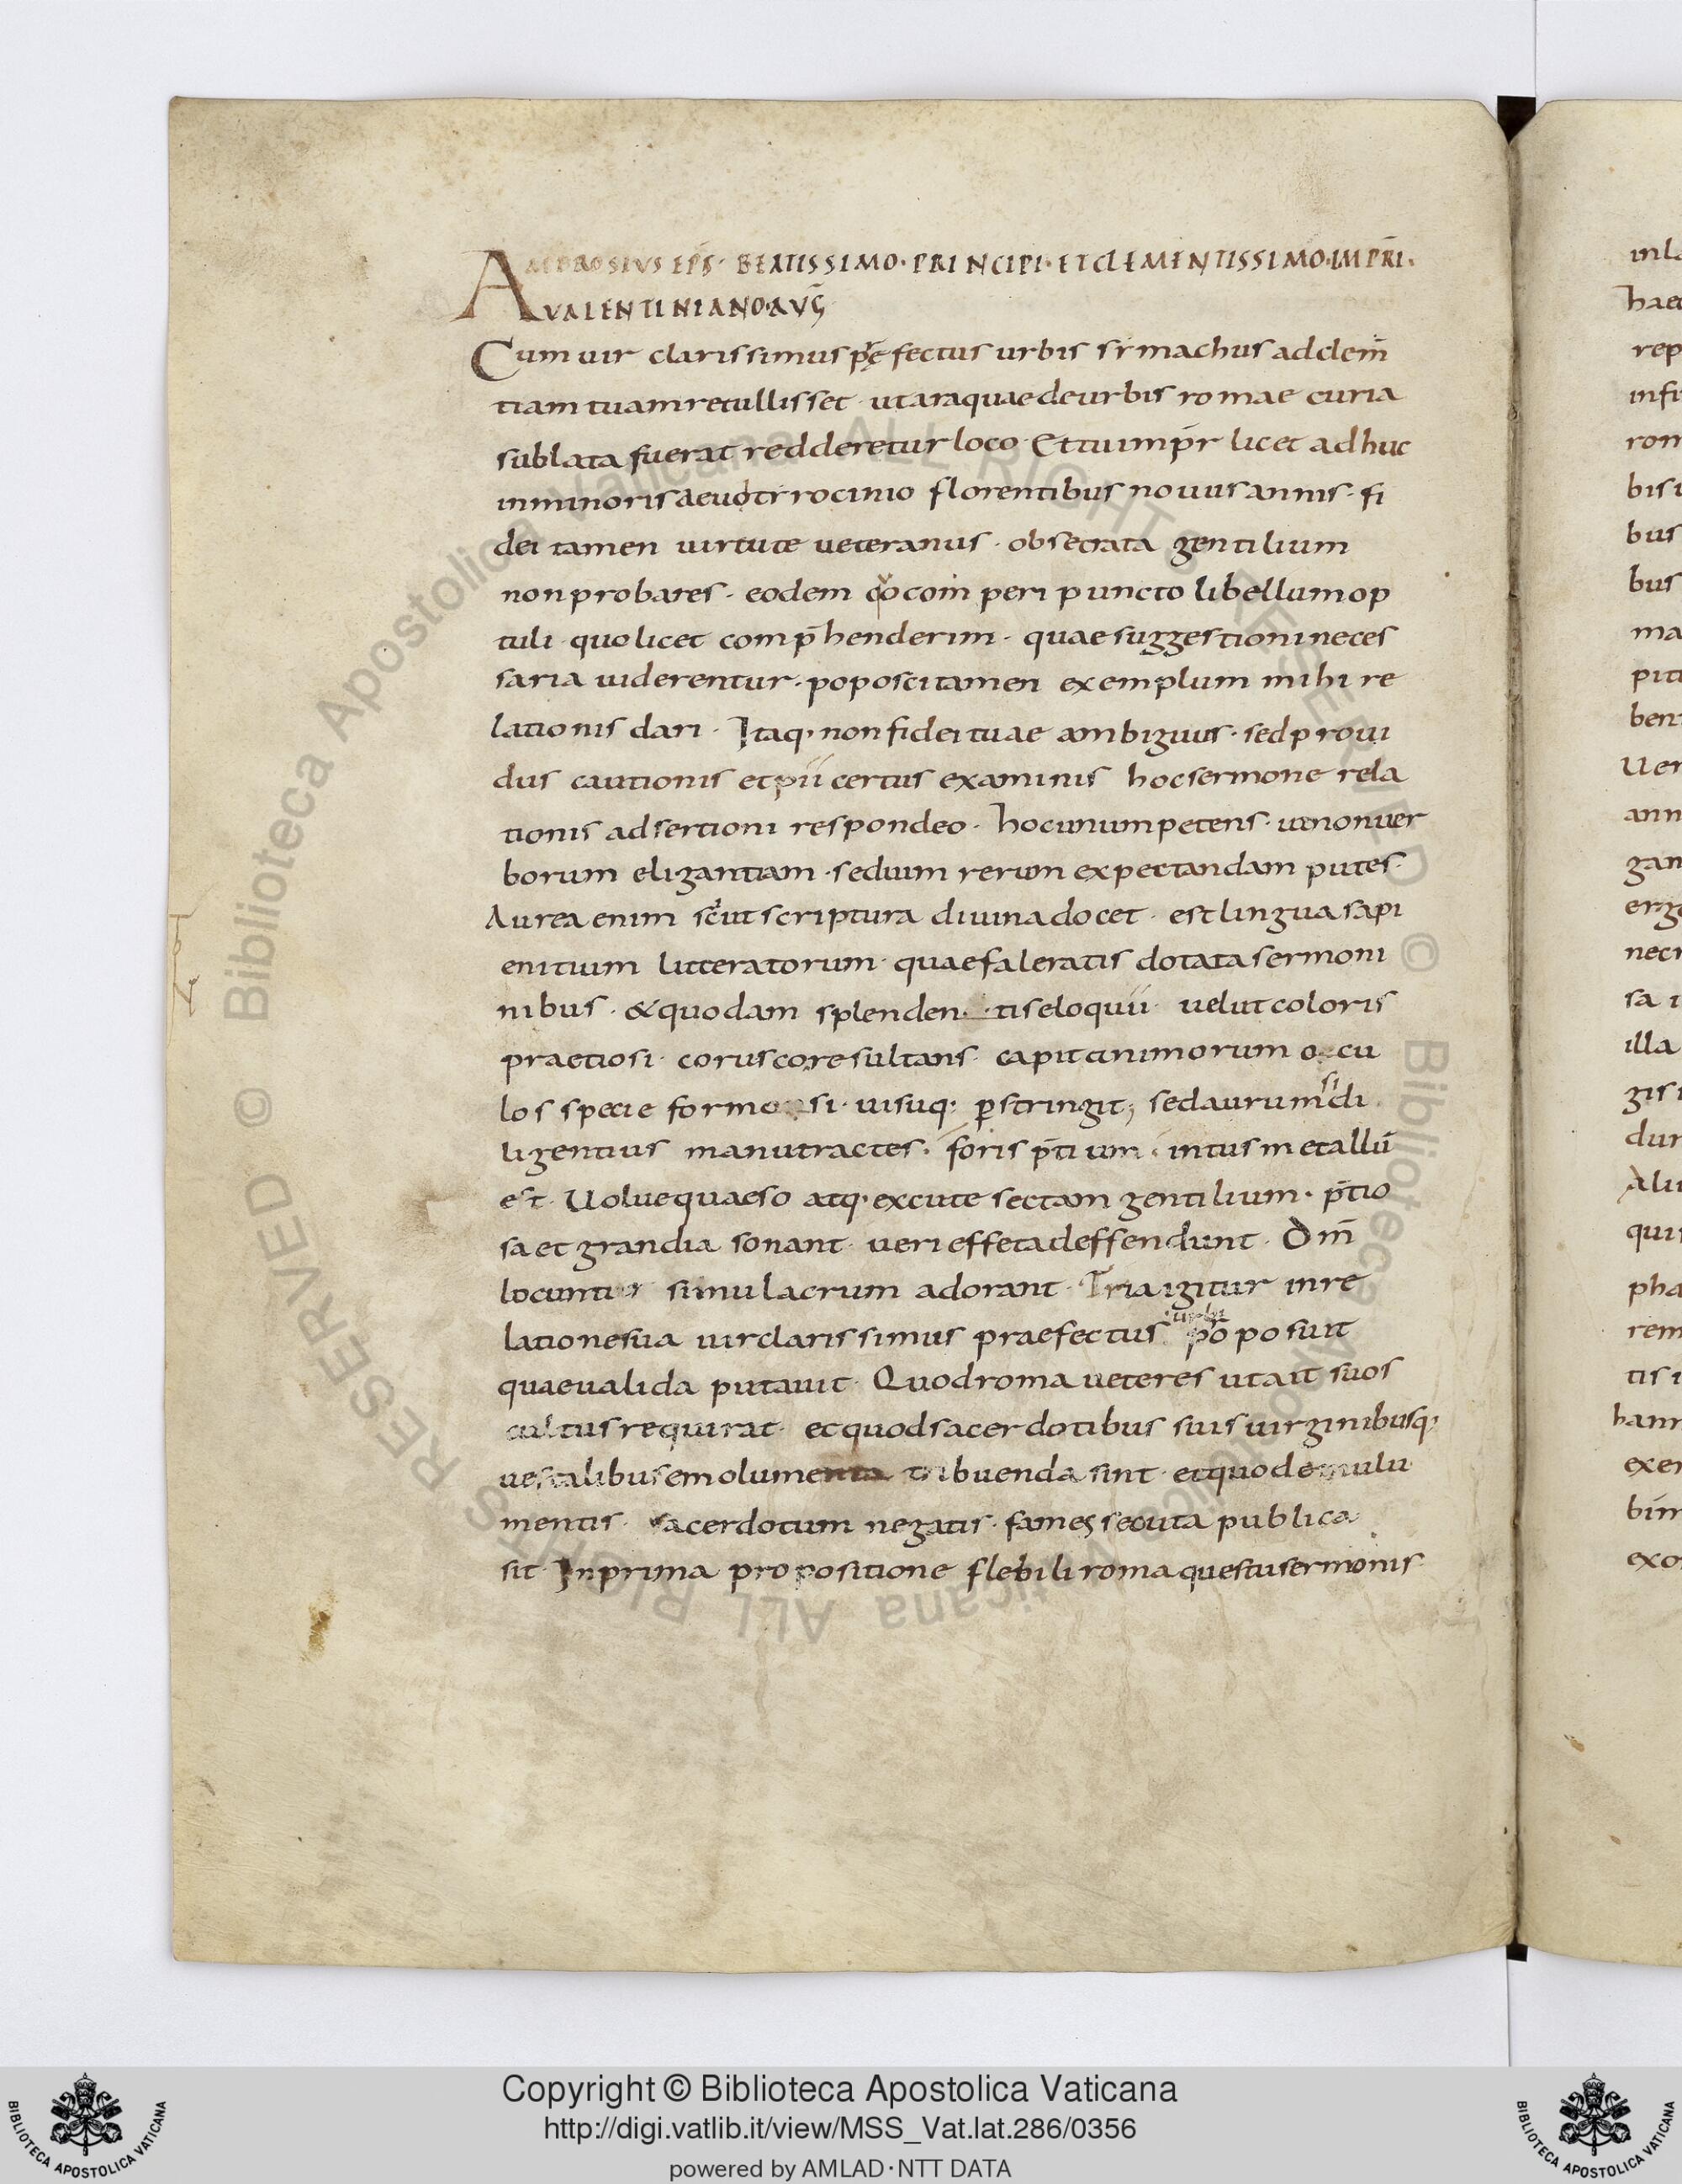 AMBROSIVS EP̄S· BEATISSIMO· PRINCIPI· ET CLEMENTISSIMO· IMPR̄I·
VALENTINIANO· AVḠ
Cum uir clarissimus p̄ęfectus urbis sẏmachus ad clem̄
tiam tuam retullisset· ut araquae de urbis romae curia
sublata fuerat redderetur loco· Et tu imp̄r licet adhuc
in minoris aeuo tẏrocinio florentibus nouus annis· fi
dei tamen uirtute ueteranus· obsecrata gentilium
non probares· eodem quo comperi puncto libellum op
tuli· quo licet comp̄henderim· quae suggestioni neces
saria uiderentur· poposci tamen exemplum mihi re
lationis dari· Itaq· non fidei tuae ambiguus· sed proui
dus cautionis et pii certus examinis hoc sermone rela
tionis adsertioni respondeo· hoc unum petens· ut non uer
borum eligantiam· sed uim rerum expectandam putes·
Aurea enim sicut scriptura diuina docet· est lingua sapi
enitium litteratorum· quae faleratis dotata sermoni
nibus· & quodam splenden tis eloquii· uelut coloris
praetiosi· corusco resultans· capit animorum occu
los specie formonsi· uisuq· p̱stringit; sed aurum si di
ligentius manu tractes· foris p̄tium· intus metallū
est· Uolue quaeso atq· excute sectam gentilium· p̄tio
sa et grandia sonant· ueri effeta deffendunt· Dm̄
locuntur simulacrum adorant· Tria igitur in re
latione sua uir clarissimus praefectus poposuit
quae ualida putauit· Quod roma ueteres ut ait suos
cultus requirat· et quod sacerdotibus suis uirginibusq·
uestalibus emolumenta tribuenda sint· et quod emulu
mentis· sacerdotum negatis· fames secuta publica
sit· In prima propositione flebili roma questu sermonis
inl
haec
rep
infi
rom
bis
bus
bus
ma
pit
ben
Uer
ann
gan
erg
nec
sa
illa
gis
dur
Alu
qui
pha
rem
tis
hanc
exe
bim
exo
© Biblioteca Apostolica Vaticana ALL RIGHTS RESERVED © Biblioteca Apostolica Vaticana ALL RIGHTS RESERVED
Copyright © Biblioteca Apostolica Vaticana
http://digi.vatlib.it/view/MSS_Vat.lat.286/0356
powered by AMLAD·NTT DATA
BIBLIOTECA APOSTOLICA VATICANA
BIBLIOTECA APOSTOLICA VATICANA